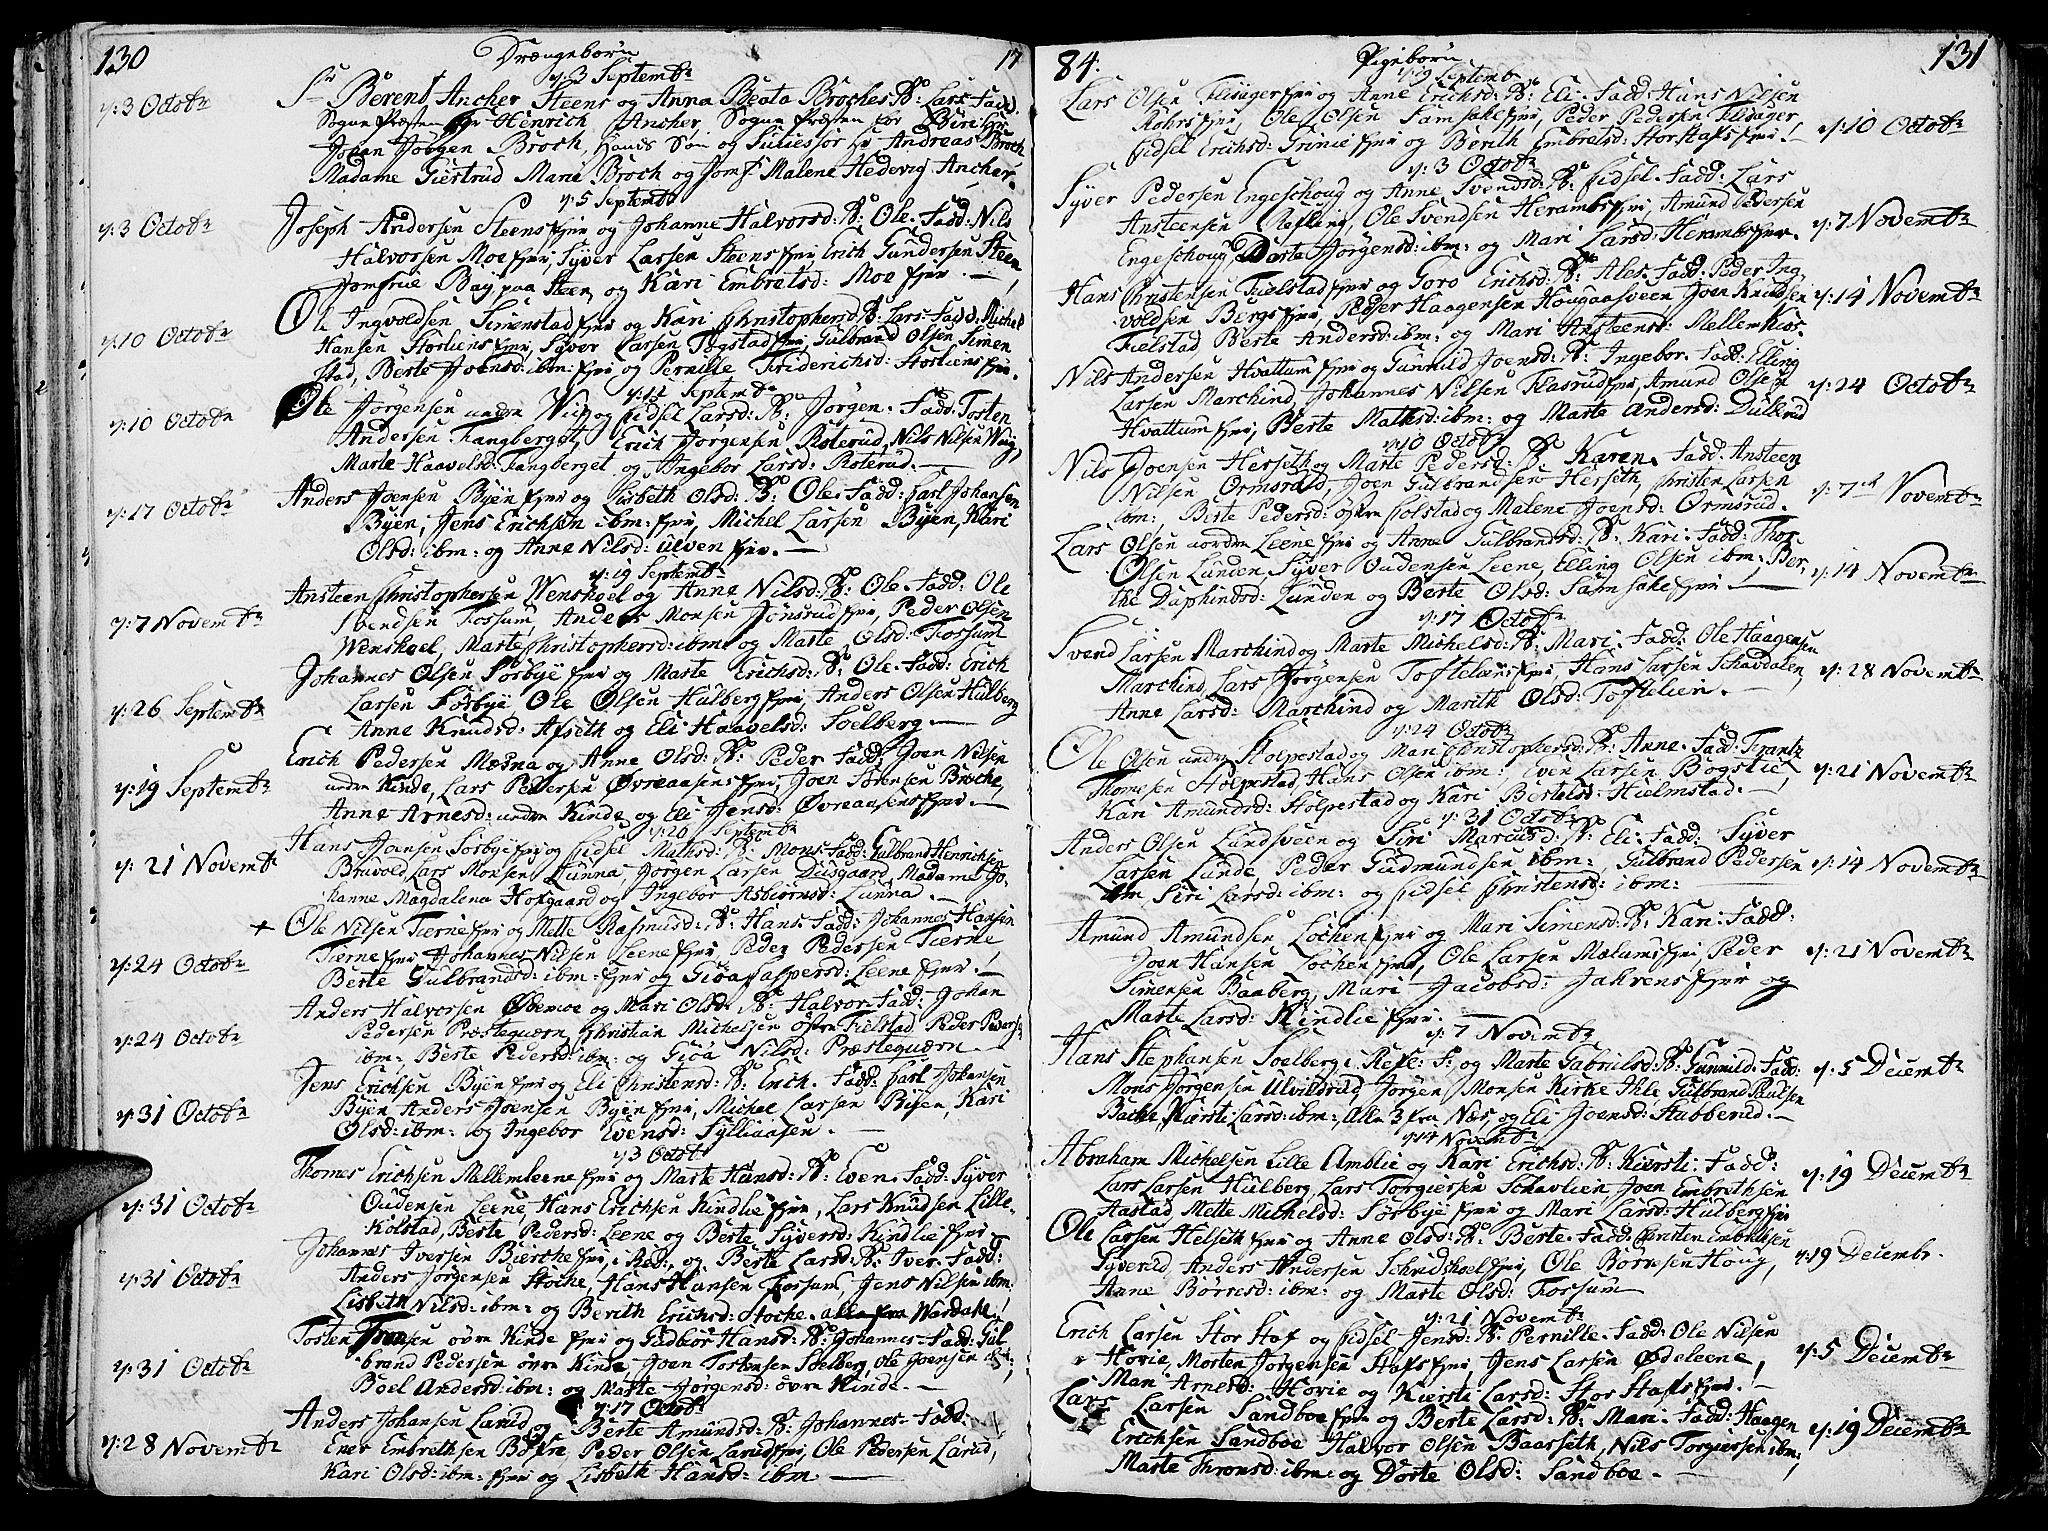 130
Drængebørn
17
y: 3 Septembr
y: 3 Octobr
Sr Berent Ancher Steens og Anna Beata Broches B: Lars. Fadd:
Sogne Præsten Hr Henrich Ancher, Sogne Præsten for
Johan Jörgen Broch, Hands Søn og Successor Hr Andreas Broch
Madame Giertrud Marie Broch og Jomf: Malene Hedevig Ancher.
y: 5 Septembr
y: 3 Octobr
Joseph Andersen Steens Ejer og Johanne Halvorsd: B: Ole. Fadd: Nils
Halvorsen Moe Ejer, Syver Larsen Steens Ejer, Erich Gundersen Steen
Jomfrue Bay paa Steen og Kari Embretsd: Moe Ejer. —
y: 10 Octobr
Ole Ingvoldsen Simenstad Ejer og Kari Christophersd: B: Lars. Fadd: Michel
Hansen Storliens Ejer, Syver Larsen Togstad Ejer, Gulbrand Olsen Simen
stad, Berte Joensd: ibm: Ejer og Pernille Friderichsd: Storliens Ejer.
y: 12 Septembr
y: 10 Octobr
Ole Jörgensen undre Wiig og Eidsel Larsd: B: Jörgen. Fadd: Tosten
Andersen Fangberget, Erich Jörgensen Roterud, Nils Nilsen Wiig,
Marte Haavelsd: Fangberget og Ingebor Larsd: Roterud. —
y: 17 Octobr
Anders Joensen Byen Ejer og Lisbeth Olsd: B: Ole. Fadd: Carl Johansen
Byen, Jens Erichsen ibm: Ejer, Michel Larsen Byen, Kari
Olsd: ibm: og Anne Nilsd: Ulven Ejer. —
y: 19 Septembr
y: 7 Novembr
Ansteen Christophersen Wenskoel og Anne Nilsd: B: Ole. Fadd: Ole
Svendsen Fossum, Anders Monsen Jönsrud Ejer, Peder Olsen
Wenskoel, Marte Christophersd: ibm: og Marte Olsd: Fossum
y: 26 Septembr
Johannes Olsen Sörbye Ejer og Marte Erichsd: B: Ole. Fadd: Erich
Larsen Sörbye, Ole Olsen Hulberg Ejer, Anders Olsen Hulberg
Anne Knudsd: Afseth og Eli Haavelsd: Soelberg. —
y: 19 Septembr
Erich Pedersen Mæsna og Anne Olsd: B: Peder. Fadd: Joen Nilsen
undre Kinde, Lars Pedersen Øvreaasens Ejer, Joen Sörensen Broche,
Anne Arnesd: undre Kinde og Eli Jensd: Øvreaasens Ejer. —
y: 26 Septembr
y: 21 Novembr
Hans Joensen Sörbye Ejer og Eidsel Mathsd: B: Mons. Fadd: Gulbrand Henrichsen
Bruvold, Lars Monsen Lunna, Jörgen Larsen Diisgaard, Madame Jo-
hanne Magdalena Hofgaard og Ingebor Asbiörnsd: Lunna. —
y: 24 Octobr
+ Ole Nilsen Tierne Ejer og Mette Rasmusd: B: Hans. Fadd: Johannes Hansen
Tierne Ejer, Johannes Nilsen Leene Ejer, Peder Pedersen Tierne,
Berte Gulbrandsd: ibm: Ejer og Giöa Jaspersd: Leene Ejer. —
y: 24 Octobr
Anders Halvorsen Øvemoe og Mari Olsd: B: Halvor. Fadd: Johan
Pedersen Præsteqværn, Christian Michelsen östre Fielstad, Peder Peders:
ibm: Berte Pedersd: ibm: og Giöa Nilsd: Præsteqværn. —
y: 31 Octobr
Jens Erichsen Byen Ejer og Eli Christensd: B: Erich. Fadd: Carl Johansen
Byen, Anders Joensen Byen Ejer, Michel Larsen Byen, Kari
Olsd: ibm: og Ingebor Evensd: Sylliaasen. —
y: 3 Octobr
y: 31 Octobr
Thomes Erichsen Mellemleene Ejer og Marte Hansd: B: Even. Fadd: Syver
Oudensen Leene, Hans Erichsen Kindlie Ejer, Lars Knudsen Lille-
Kolstad, Berte Pedersd: Leene og Berte Syversd: Kindlie Ejer. —
y: 31 Octobr
Johannes Iversen Bierche Ejer, i Red: og Berte Larsd: B: Iver. Fadd:
Anders Jörgensen Stöcke, Hans Hansen Fossum, Jens Nilsen ibm:
Lisbeth Nilsd: ibm: og Berith Erichsd: Stocke. alle fra Wardahl!
y: 31 Octobr
Tosten övre Kinde Ejer og Gudbör Hansd: B: Johannes. Fadd: Gul
brand Pedersen övre Kinde, Joen Tostensen Soelberg, Ole Joensen ibm:
Boel Andersd: ibm: og Marte Jörgensd: övre Kinde. —
y: 17 Octobr
y: 28 Novembr
Anders Johansen Larud og Berte Amundsd: B: Johannes. Fadd:
Ener Embrethsen Böfre, Peder Olsen Larud Ejer, Ole Pedersen Larud,
Kari Olsd: ibm: Ejer og Lisbeth Hansd: ibm. —
84.
Pigebørn
131
y: 19 Septemb
Lars Olsen Flisager Ejer og Anne Erichsd: B: Eli. Fadd: Hans Nilsen
Rohrs Ejer, Ole Olsen Samsahl Ejer, Peder Pedersen Flisager
Eidsel Erichsd: Trinie Ejer og Berith Embretsd: Stor Stafs Ejer! —
y: 10 Octobr
y: 3 Octobr
Syver Pedersen Engeschoug og Anne Svendsd: B: Eidsel. Fadd: Lars
Ansteensen Refling, Ole Svendsen Herambs Ejer, Amund Pedersen
Engeschoug, Dorte Jörgensd: ibm: og Mari Larsd: Herambs Ejer.
y: 7 Novembr
Hans Christensen Fielstad Ejer og Goro Erichsd: B: Ales. Fadd: Peder Ing
voldsen Bergs Ejer, Peder Haagensen Hougaasveen, Joen Knudsen
Fielstad, Berte Andersd: ibm: og Mari Ansteensd: Mellem Kiös.
y: 14 Novembr
Nils Andersen Hvattum Ejer og Gunnild Joensd: B: Ingebor. Fadd: Elling
Larsen Marchind, Johannes Nilsen Flasrud Ejer, Amund Olsen
Hvattum Ejer, Berte Mathsd: ibm: og Marte Andersd: Dulrud
y: 24 Octobr
y: 10 Octobr
Nils Joensen Herseth og Marte Pedersd: B: Karen. Fadd: Ansteen
Nilsen Ormsrud, Joen Gulbrandsen Herseth, Christen Larsen
ibm: Berte Pedersd: östre Colstad og Malene Joensd: Ørmsrud.
y: 7de Novembr
Lars Olsen nordre Leene Ejer og Anne Gulbrandsd: B: Kari. Fadd: Thor
Olsen Lunden, Syver Oudensen Leene, Elling Olsen ibm, Ber-
the Daphindsd: Lunden og Berte Olsd: Samsahl Ejer —
y: 14 Novembr
y: 17 Octobr
Svend Larsen Marchind og Marte Michelsd: B: Mari. Fadd: Ole Haagensen
Marchind, Lars Jörgensen Tofteliens Ejer, Hans Larsen Schavdalen,
Anne Larsd: Marchind og Marith Olsd: Toftelien. —
y: 28 Novembr
y: 24 Octobr
Ole Olsen undre Stolpestad og Mari Christophersd: B: Anne. Fadd: Frantz
Thomesen Stolpestad, Hans Olsen ibm: Even Larsen Bogstie,
Kari Amundsd: Stolpestad og Kari Bertelsd: Hielmstad. —
y: 21 Novembr
y: 31 Octobr
Anders Olsen Lundsveen og Siri Marcusd: B: Eli. Fadd: Syver
Larsen Lunde, Peder Gudmundsen ibm: Gulbrand Pedersen
ibm Siri Larsd: ibm: og Eidsel Christensd: ibm:
y: 14 Novembr
Amund Amundsen Löchen Ejer og Mari Simensd: B: Kari. Fadd:
Joen Hansen Löchen Ejer, Ole Larsen Mælums Ejer, Peder
Simensen Baaberg, Mari Jacobsd: Jahrens Ejer og
Marte Larsd: Kindlie Ejer. —
y: 21 Novembr
y: 7 Novembr
Hans Stephansen Soelberg i Refl: S: og Marte Gabrielsd: B: Gunnild. Fadd:
Mons Jörgensen Ulvildrud, Jörgen Monsen Kirke Ihle, Gulbrand Paulsen
Bache, Kiersti Larsd: ibm: Alle 3 fra Næs, og Eli Joensd: Stabberud. —
y: 5 Decembr
y: 14 Novembr
Abraham Michelsen Lille Amlie og Kari Erichsd: B: Kiersti. Fadd:
Lars Larsen Hulberg, Lars Torgiersen Schavlien, Joen Embrethsen
Aastad, Mette Michelsd: Sörbye Ejer og Mari Larsd: Hulberg Ejer
y: 19 Decembr
Ole Larsen Helseth Ejer og Anne Olsd: B: Berte. Fadd: Christen Embrethsen
Syverud, Anders Andersen Schredshoel Ejer, Ole Börresen Houg,
Anne Börresd: ibm: og Marte Olsd: Fossum
y: 19 Decembr.
y: 21 Novembr
Erich Larsen Stor Stof og Eidsel Jensd: B: Pernille. Fadd: Ole Nilsen
Hovie, Morten Jörgensen Stafs Ejer, Jens Larsen Ødeleene,
Mari Arnesd: Hovie og Kiersti Larsd: Stor Stafs Ejer. —
y: 5 Decembr
Lars Larsen Sandboe Ejer og Berte Larsd: B: Mari. Fadd: Haagen
Erichsen Sandboe, Halvor Olsen Baarseth, Nils Torgiersen ibm:
Marte Fronsd: ibm: og Dorte Olsd: Sandboe. —
y: 19 Decembr